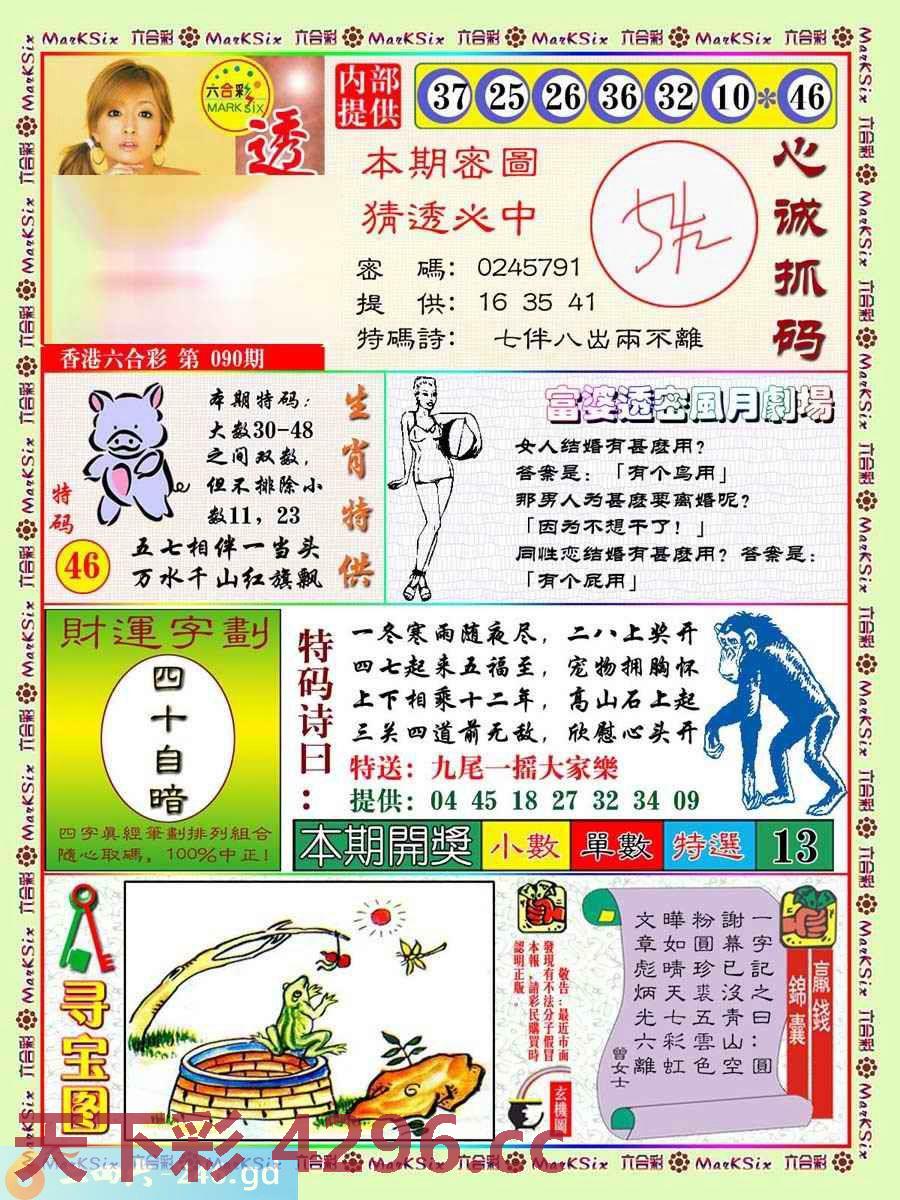 MarKSix 六合彩 MarKSix 六合彩 MarKSix 六合彩 MarKSix 六合彩 MarKSix 六合彩
六合彩
MARK SIX
透
内部
提供
37 25 26 36 32 10 * 46
本期密圖
猜透必中
密 碼: 0245791
提 供: 16 35 41
特碼詩: 七伴八出兩不離
心诚抓码
香港六合彩 第 090期
特码
46
本期特码:
大数30-48
之间双数,
但不排除小
数11, 23
五七相伴一当头
万水千山红旗飘
生肖特供
富婆透密風月劇場
女人结婚有甚麽用?
答案是: 「有个鸟用」
那男人为甚麽要离婚呢?
「因为不想干了! 」
同性恋结婚有甚麽用? 答案是:
「有个屁用」
財運字劃
四十自暗
四字真經筆劃排列組合
隨心取碼, 100%中正!
特码诗曰:
一冬寒雨随夜尽, 二八上奖开
四七起来五福至, 宠物拥胸怀
上下相乘十二年, 高山石上起
三关四道前无敌, 欣慰心头开
特送: 九尾一摇大家樂
提供: 04 45 18 27 32 34 09
本期開獎 小數 單數 特選 13
寻宝图
敬告:最近市面
發現有不法分子假冒
本報,請彩民購買時
認明正版。
玄機圖
贏錢
錦囊
一字記之曰:圓
謝幕已沒青山空
粉圓珍裘五雲色
曄如晴天七彩虹
文章彪炳光六離
曾女士
天下彩4296.cc
MarKSix 六合彩 MarKSix 六合彩 MarKSix 六合彩 MarKSix 六合彩